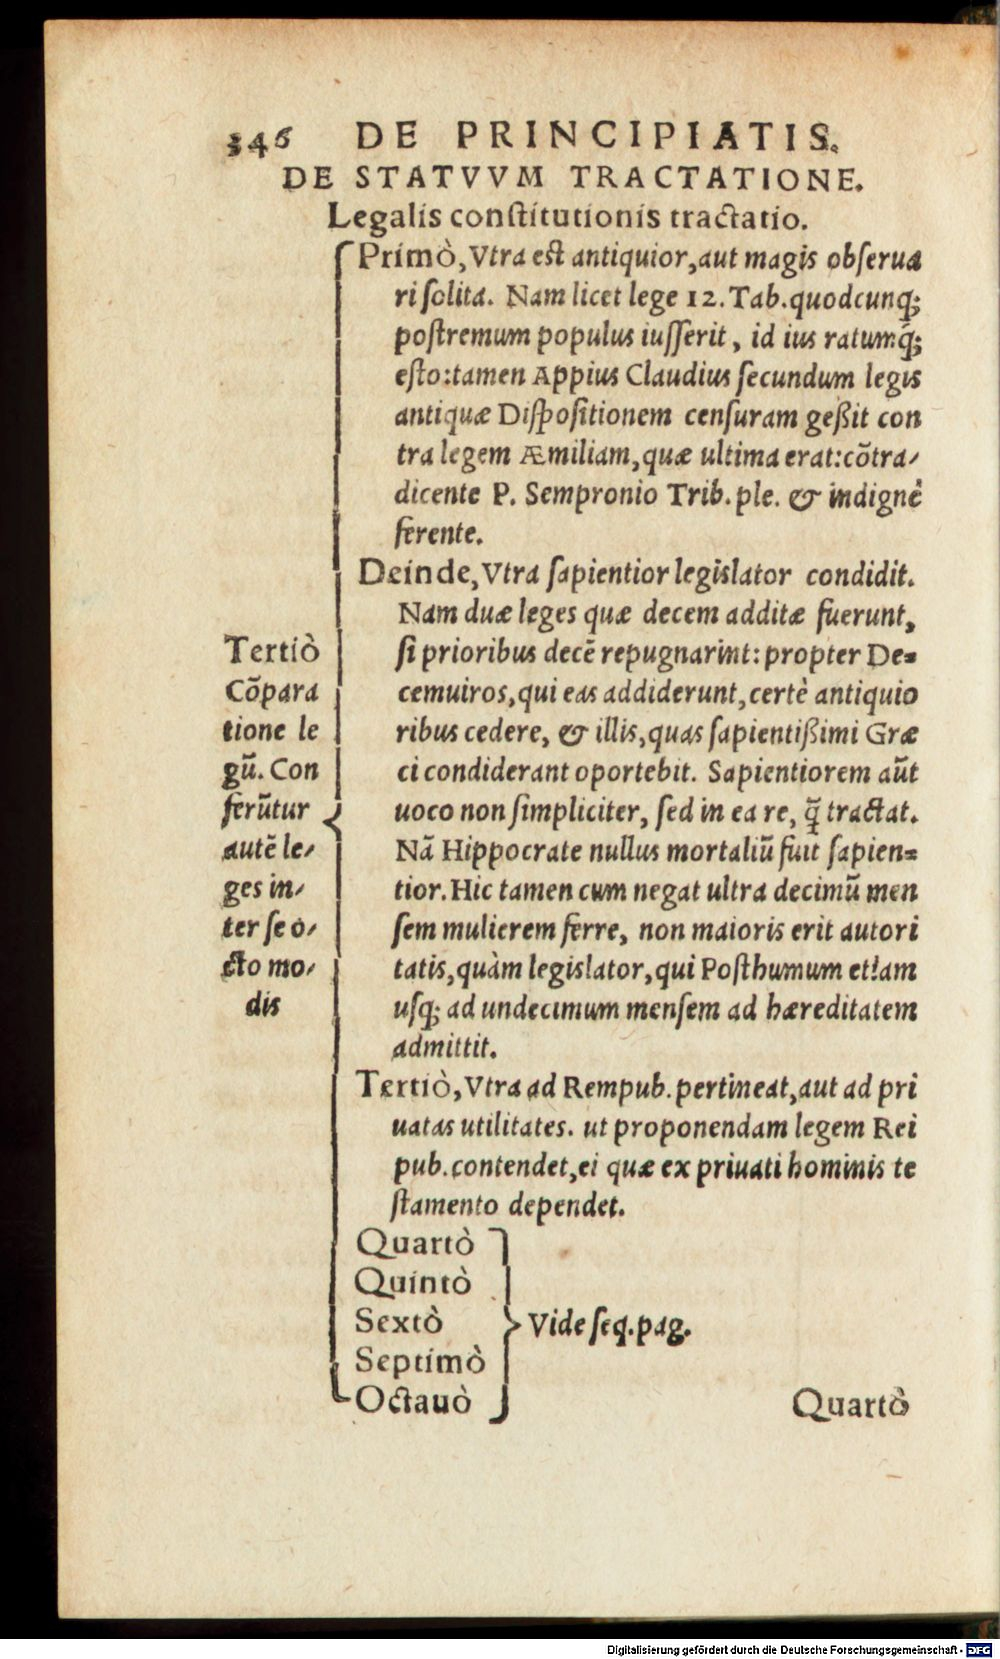 346 DE PRINCIPIATIS.
DE STATVVM TRACTATIONE.
Legalis constitutionis tractatio.
Primò, Vtra est antiquior, aut magis obserua
ri solita. Nam licet lege 12. Tab. quodcunq;
postremum populus iusserit, id ius ratumq́;
esto: tamen Appius Claudius secundum legis
antiquæ Dispositionem censuram geßit con
tra legem Æmiliam, quæ ultima erat: cōtra/
dicente P. Sempronio Trib. ple. & indignè
ferente.
Deinde, Vtra sapientior legislator condidit.
Nam duæ leges quæ decem additæ fuerunt,
si prioribus decē repugnarint: propter De=
cemuiros, qui eas addiderunt, certè antiquio
ribus cedere, & illis, quas sapientißimi Græ
ci condiderant oportebit. Sapientiorem aūt
uoco non simpliciter, sed in ea re, q̄ tractat.
Nā Hippocrate nullus mortaliū fuit sapien=
tior. Hic tamen cum negat ultra decimū men
sem mulierem ferre, non maioris erit autori
tatis, quàm legislator, qui Posthumum etiam
usq; ad undecimum mensem ad hæreditatem
admittit.
Tertiò, Vtra ad Rempub. pertineat, aut ad pri
uatas utilitates. ut proponendam legem Rei
pub. contendet, ei quæ ex priuati hominis te
stamento dependet.
Tertiò
Cōpara
tione le
gū. Con
ferūtur
autē le/
ges in/
ter se o/
cto mo/
dis
Quartò
Quintò
Sextò
Septimò
Octauò
Vide seq. pag.
Quartò
Digitalisierung gefördert durch die Deutsche Forschungsgemeinschaft - DFG